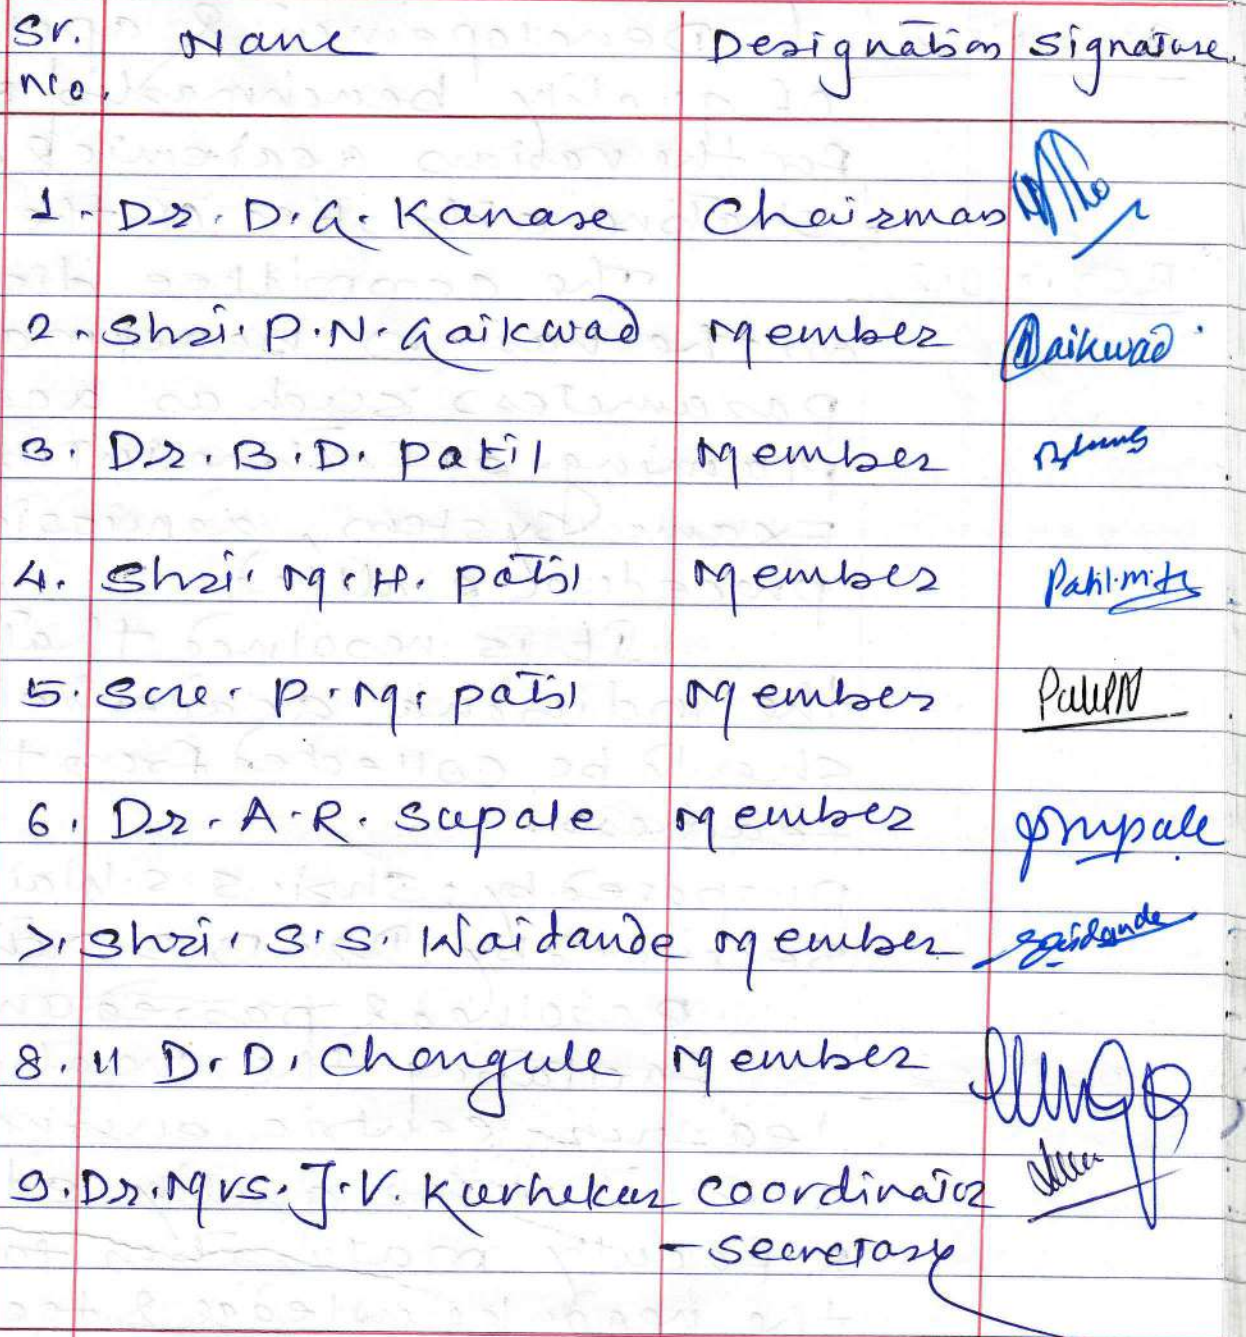 Sr. Name Designation Signature
No.
1. Dr. D. G. Kanase Chairman
2. Shri. P. N. Gaikwad Member Gaikwad
3. Dr. B. D. Patil Member
4. Shri. M. H. Patil Member Patil.M.H.
5. Sou. P. M. Patil Member
6. Dr. A. R. Supale Member Supale
7. Shri. S. S. Waidande Member Waidande
8. 11 D. D. Chougule Member
9. Dr. Mrs. J. V. Kurhekar Coordinator
- Secretary